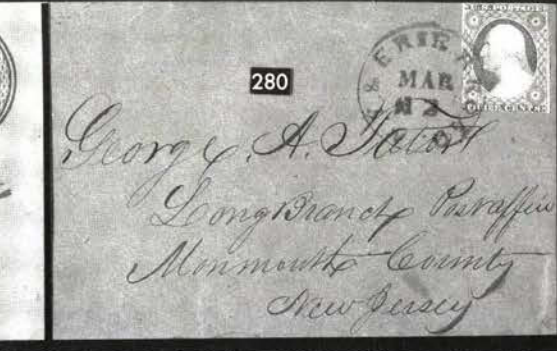 U.S. POSTAGE
& ERIE R.
MAR
280
George A. Tator
Long Branch Postoffice
Monmouth County
New Jersey